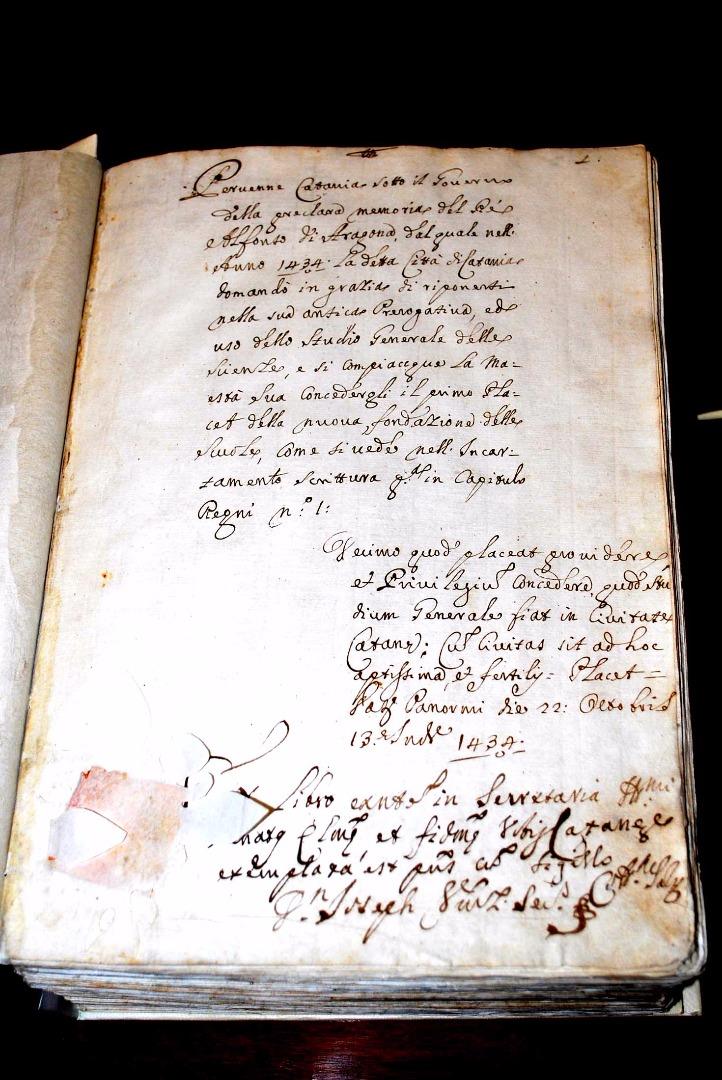 1.
Pervenne Catania sotto il Governo
della preclara memoria del Ré
Alfonso di Aragona, dal quale nell:
Anno 1434. La detta Città di Catania
domandò in grazia di riponersi
nella sua antica Prerogativa, ed
uso dello Studio Generale delle
scienze, e si compiacque La Ma=
està Sua concedergli il primo Pla=
cet della nuova fondazione delle
scuole, come si vede nell: Incar=
tamento scrittura in Capitulo
Regni n.º 1:
quod placeat providere
et Privilegiu concedere quod Stu
dium Generale fiat in Civitate
Catane; Civitas sit ad hoc
aptissima, et fertilis: Placet =
Panormi die 22: Octobris
13.e Ind. 1434.
Libro in Secretaria
et Catane
exemplata est sigillo
D.n Joseph Sec.s